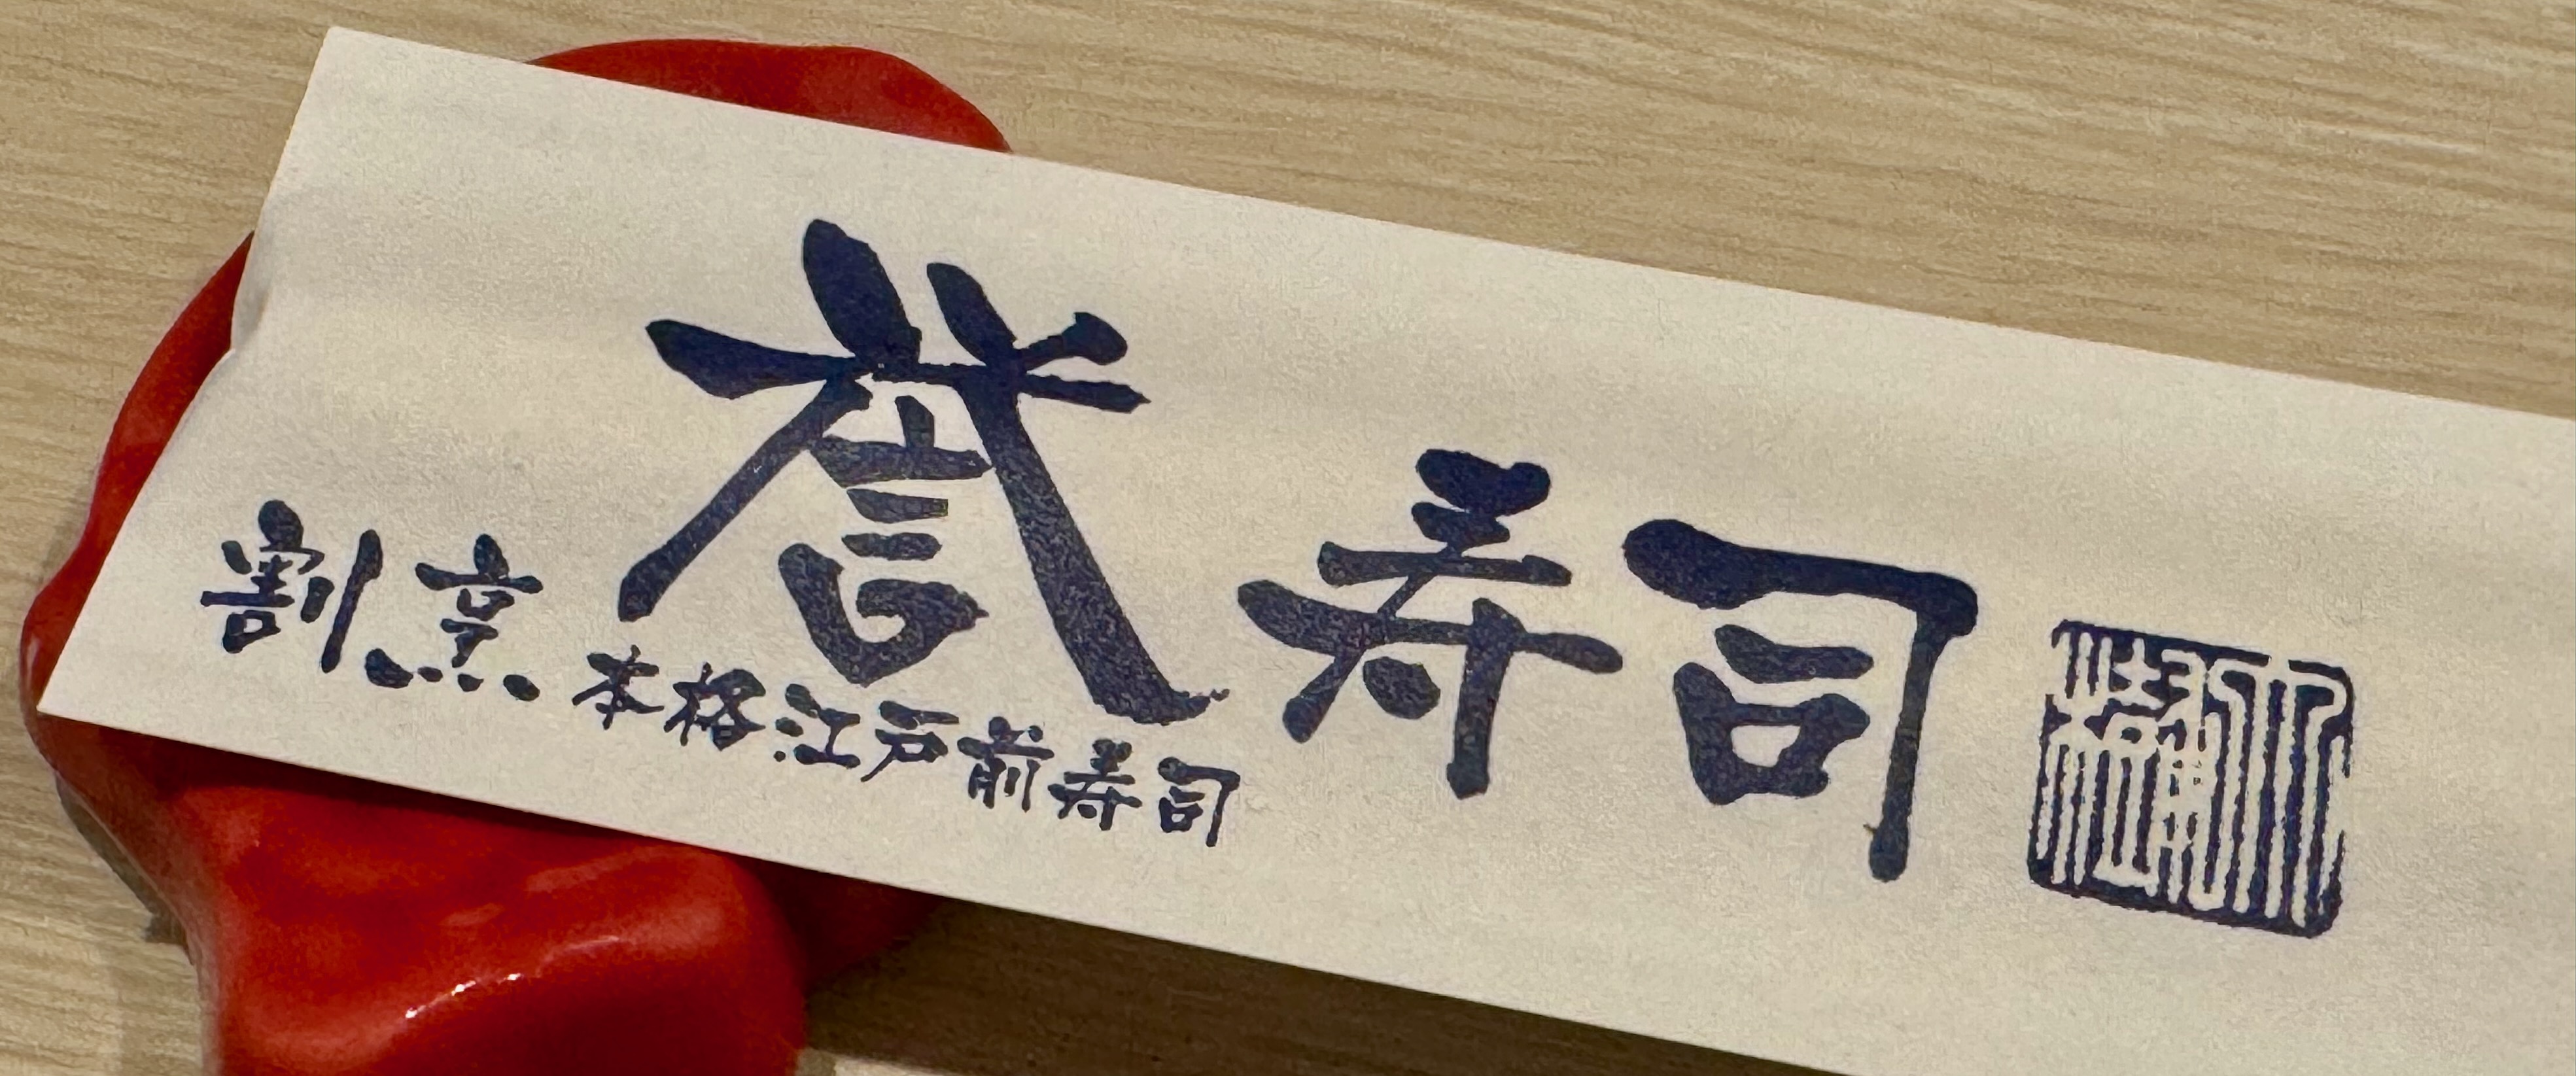 割烹
誉寿司
本格江戸前寿司